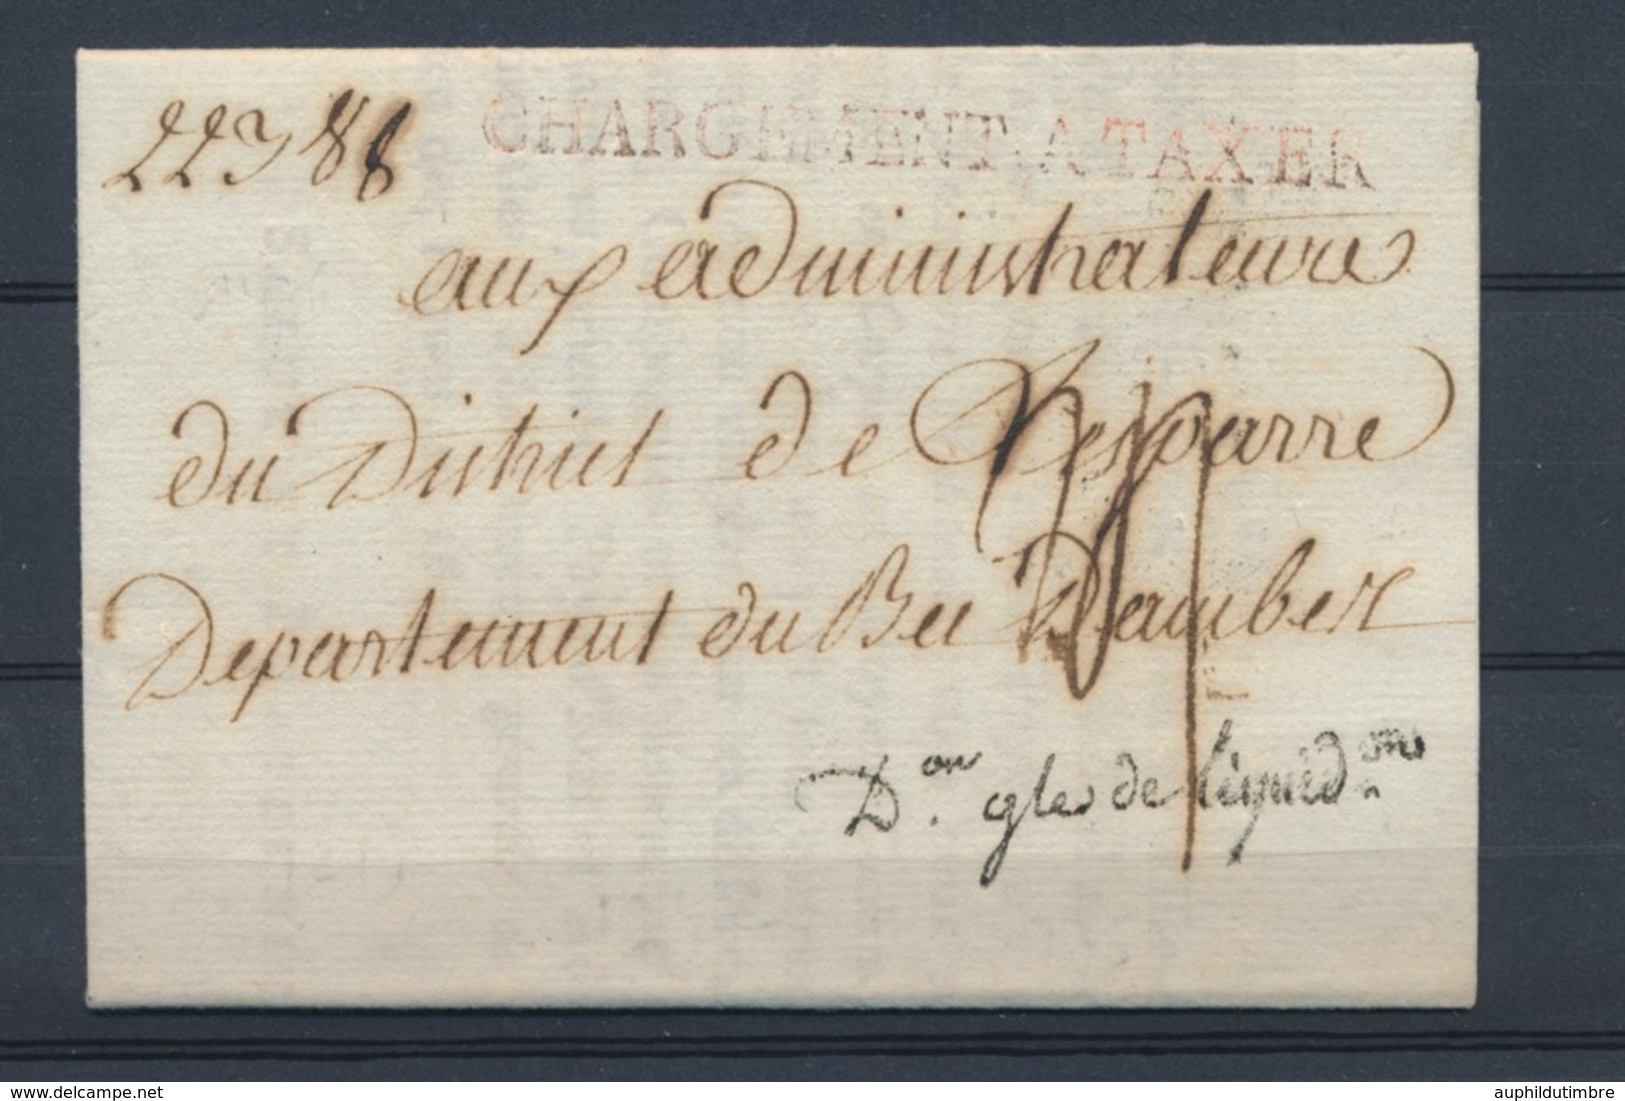 22388
CHARGEMENT A TAXER
aux administrateurs
du District de Lesparre
Departement du Bec Dambez
D.on gle de liquid.on
auphildutimbre